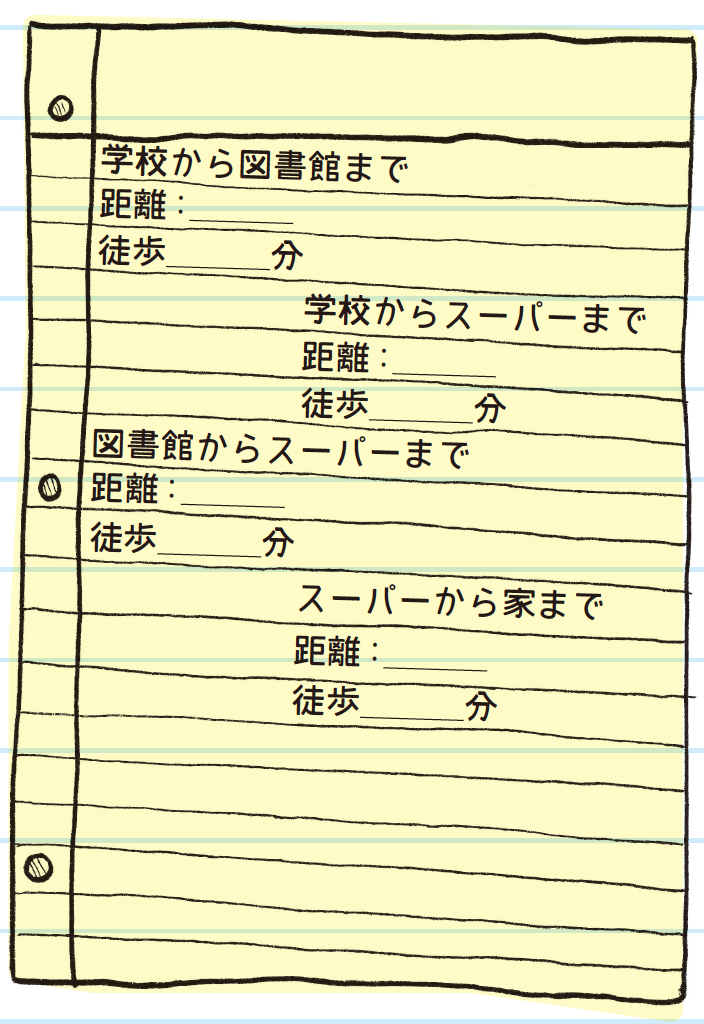 学校から図書館まで
距離：______
徒歩______分
学校からスーパーまで
距離：______
徒歩______分
図書館からスーパーまで
距離：______
徒歩______分
スーパーから家まで
距離：______
徒歩______分